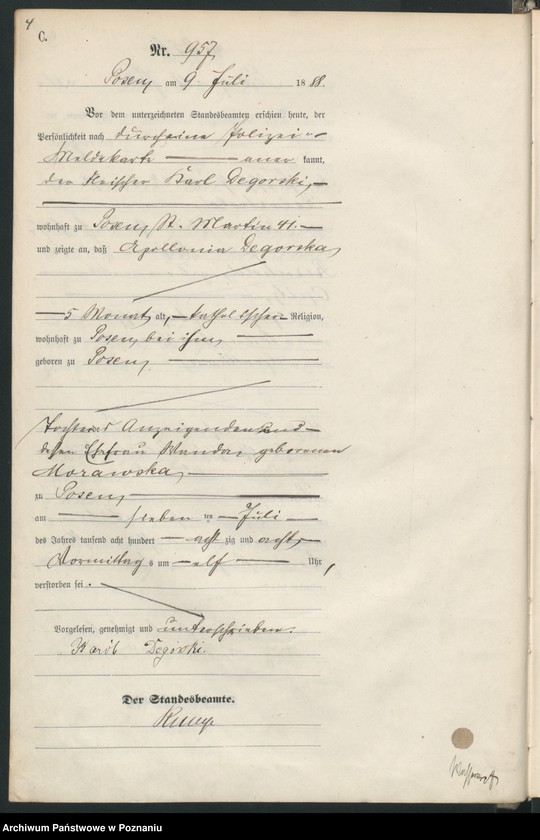 4
C.
Nr. 957
Posen, am 9 Juli 1888.
Vor dem unterzeichneten Standesbeamten erschien heute, der
Persönlichkeit nach durch eine Polizei-
Meldekarte aner kannt,
der Fleischer Karl Degorski,
wohnhaft zu Posen, St. Martin 41.
und zeigte an, daß Apollonia Degorska,
5 Monat alt, katholischer Religion,
wohnhaft zu Posen, bei ihm,
geboren zu Posen,
Tochter des Anzeigenden und
dessen Ehefrau Wanda, geborenen
Morawska,
zu Posen,
am sieben ten Juli
des Jahres tausend acht hundert acht zig und acht,
Vormittags um elf Uhr,
verstorben sei.
Vorgelesen, genehmigt und unterschrieben.
Karol Degórski.
Der Standesbeamte.
Archiwum Państwowe w Poznaniu